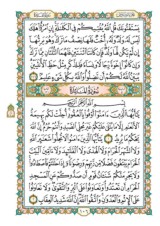 يَسْتَفْتُونَكَ قُلِ اللَّهُ يُفْتِيكُمْ فِي الْكَلَالَةِ إِنِ امْرُؤٌا هَلَكَ
لَيْسَ لَهُ وَلَدٌ وَلَهُ أُخْتٌ فَلَهَا نِصْفُ مَا تَرَكَ وَهُوَ يَرِثُهَا
إِن لَّمْ يَكُن لَّهَا وَلَدٌ فَإِن كَانَتَا اثْنَتَيْنِ فَلَهُمَا الثُّلُثَانِ مِمَّا تَرَكَ
وَإِن كَانُوا إِخْوَةً رِّجَالًا وَنِسَاءً فَلِلذَّكَرِ مِثْلُ حَظِّ الْأُنثَيَيْنِ
يُبَيِّنُ اللَّهُ لَكُمْ أَن تَضِلُّوا وَاللَّهُ بِكُلِّ شَيْءٍ عَلِيمٌ
سُورَةُ المَائِدَةِ
بِسْمِ اللَّهِ الرَّحْمَٰنِ الرَّحِيمِ
يَا أَيُّهَا الَّذِينَ آمَنُوا أَوْفُوا بِالْعُقُودِ أُحِلَّتْ لَكُم بَهِيمَةُ
الْأَنْعَامِ إِلَّا مَا يُتْلَىٰ عَلَيْكُمْ غَيْرَ مُحِلِّي الصَّيْدِ وَأَنتُمْ حُرُمٌ إِنَّ اللَّهَ
يَحْكُمُ مَا يُرِيدُ يَا أَيُّهَا الَّذِينَ آمَنُوا لَا تُحِلُّوا شَعَائِرَ اللَّهِ
وَلَا الشَّهْرَ الْحَرَامَ وَلَا الْهَدْيَ وَلَا الْقَلَائِدَ وَلَا آمِّينَ الْبَيْتَ الْحَرَامَ
يَبْتَغُونَ فَضْلًا مِّن رَّبِّهِمْ وَرِضْوَانًا وَإِذَا حَلَلْتُمْ فَاصْطَادُوا
وَلَا يَجْرِمَنَّكُمْ شَنَآنُ قَوْمٍ أَن صَدُّوكُمْ عَنِ الْمَسْجِدِ
الْحَرَامِ أَن تَعْتَدُوا وَتَعَاوَنُوا عَلَى الْبِرِّ وَالتَّقْوَىٰ وَلَا تَعَاوَنُوا
عَلَى الْإِثْمِ وَالْعُدْوَانِ وَاتَّقُوا اللَّهَ إِنَّ اللَّهَ شَدِيدُ الْعِقَابِ
١٠٦